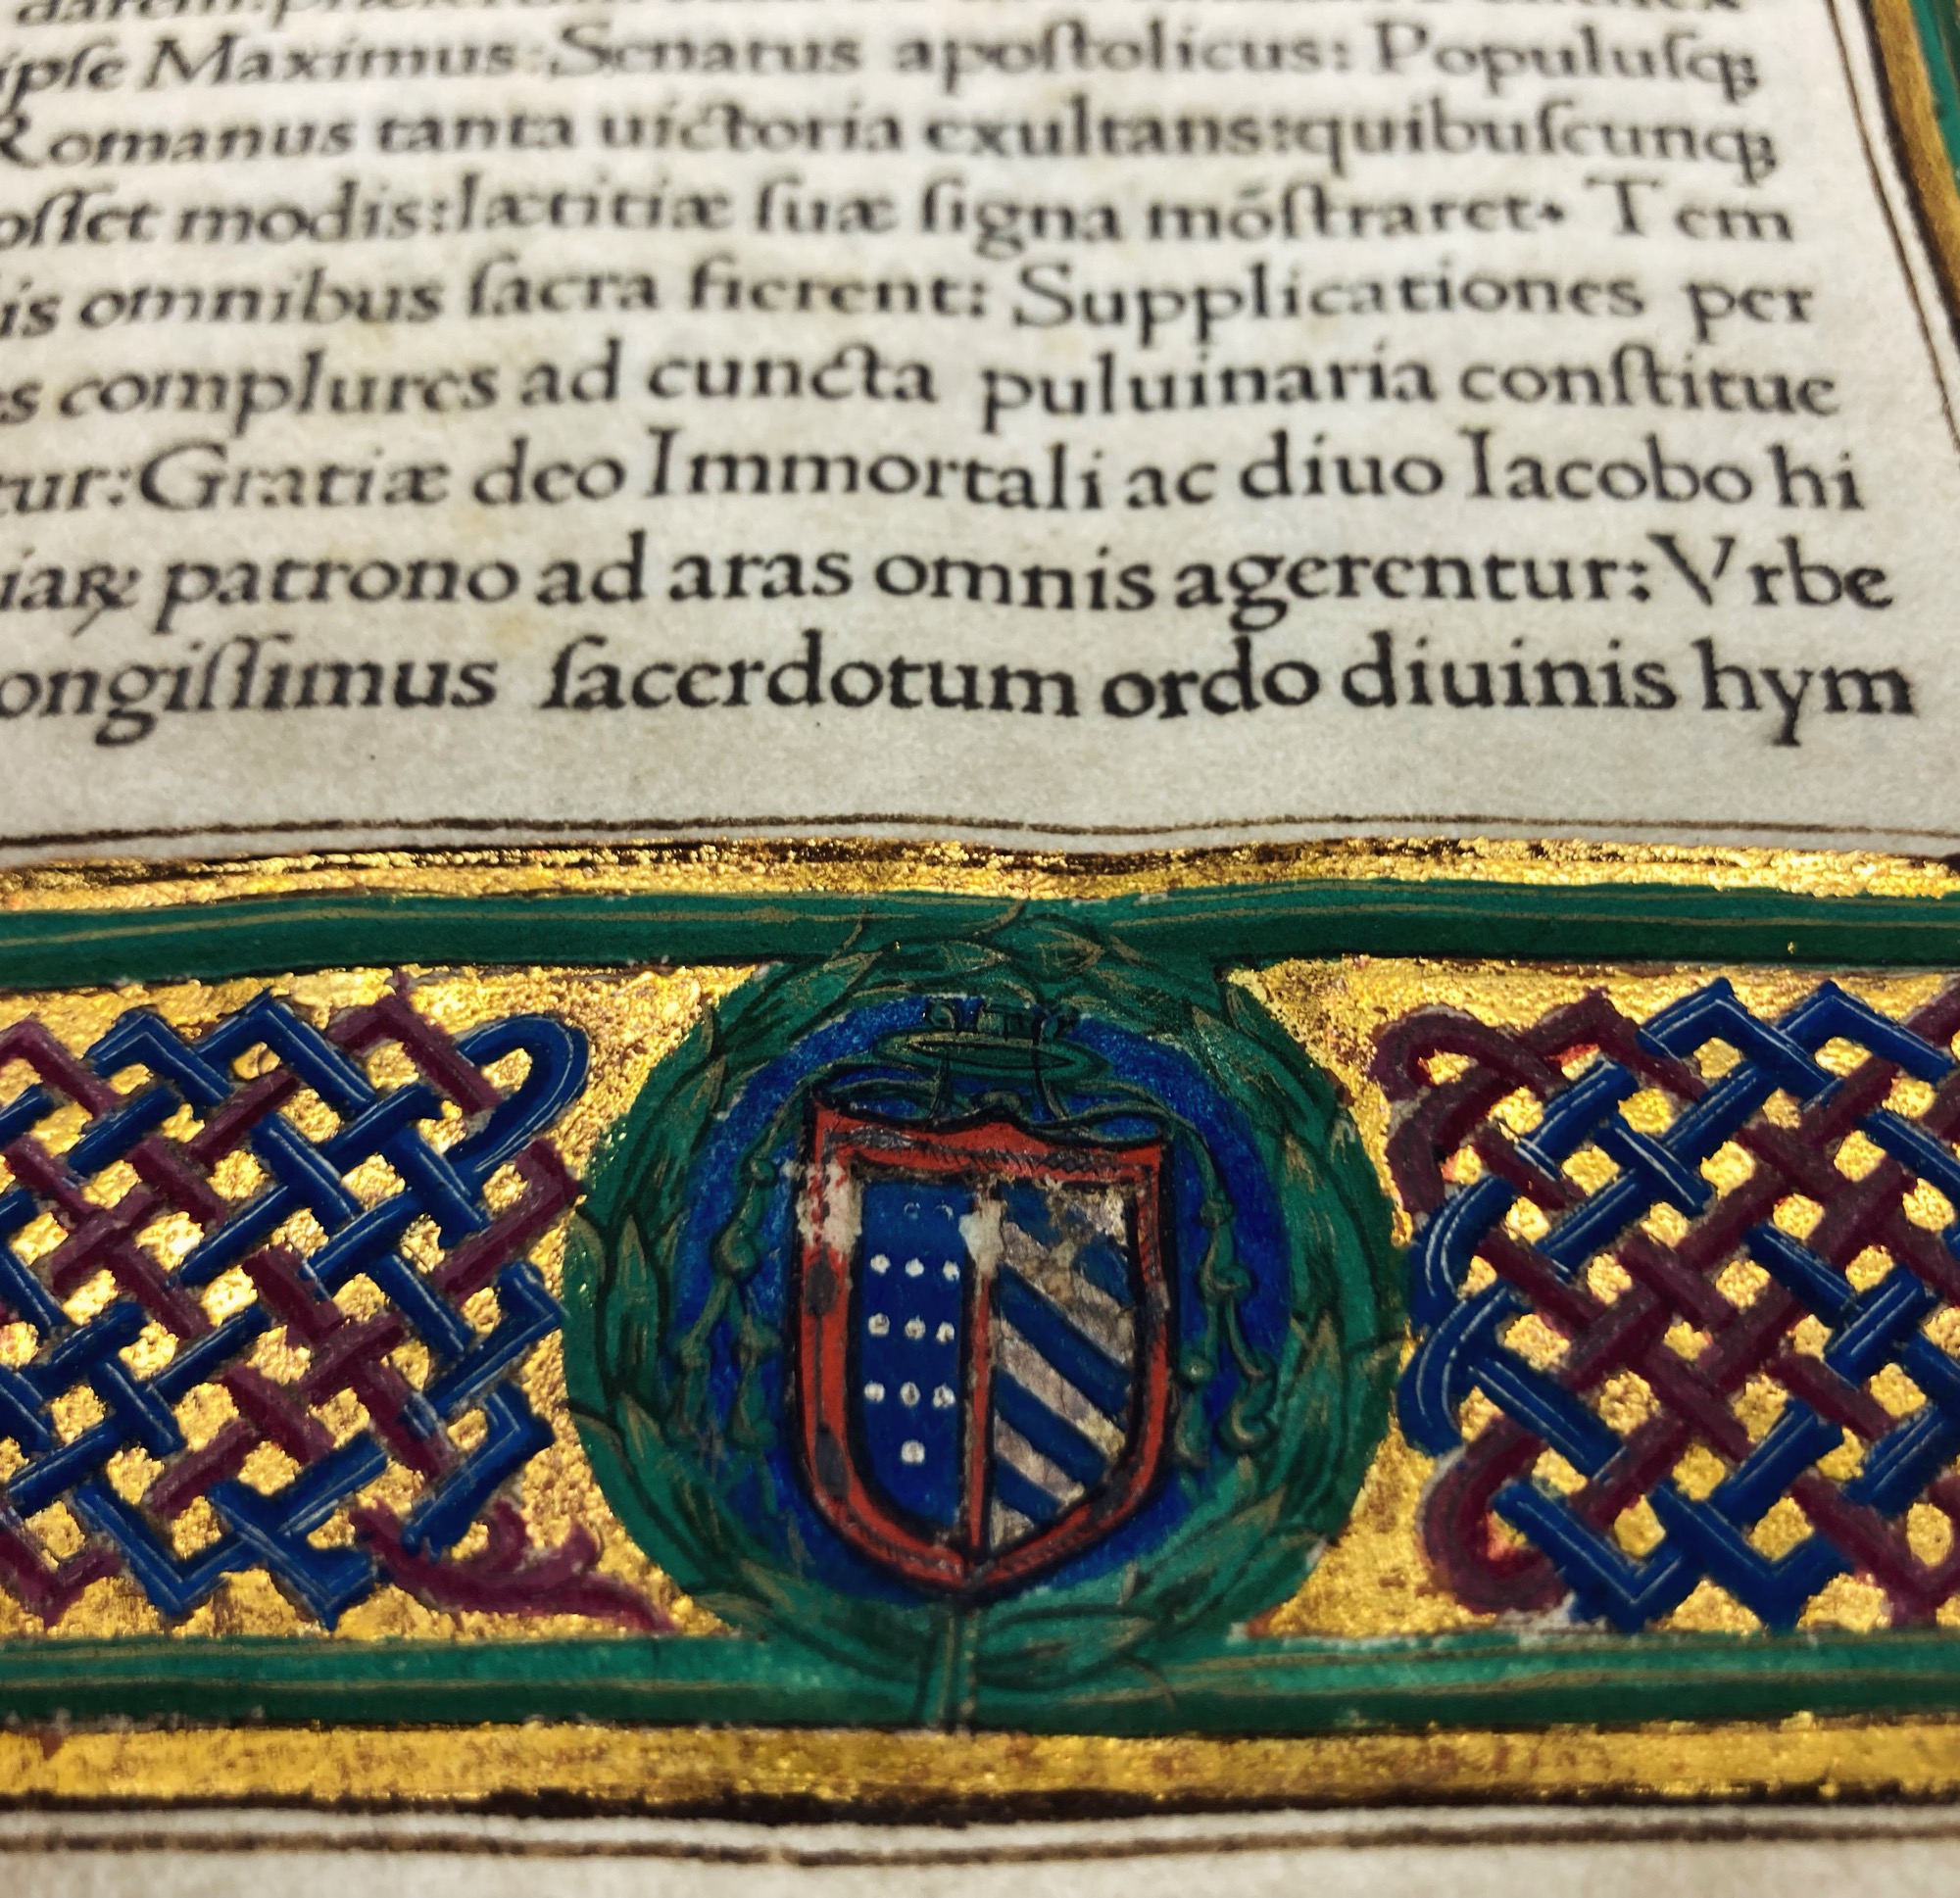 ipſe Maximus: Senatus apoſtolicus: Populuſqꝫ
Romanus tanta uictoria exultans:quibuſcunqꝫ
oſſet modis:lætitiæ ſuæ ſigna móſtraret. Tem
is omnibus ſacra fierent: Supplicationes per
s complures ad cuncta puluinaria conſtitue
tur:Gratiæ deo Immortali ac diuo Iacobo hi
iaꝝ patrono ad aras omnis agerentur: Vrbe
ongiſſimus ſacerdotum ordo diuinis hym